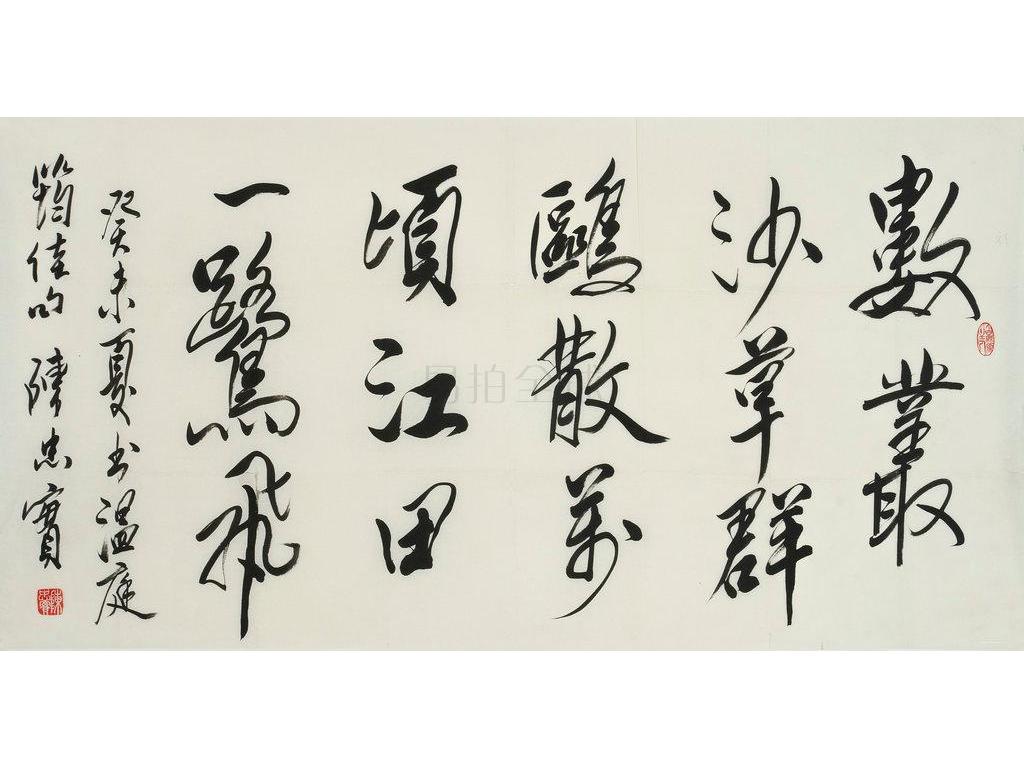 數叢
沙草群
鷗散萬
頃江田
一鷺飛
癸未夏书溫庭
筠佳句 陳忠實